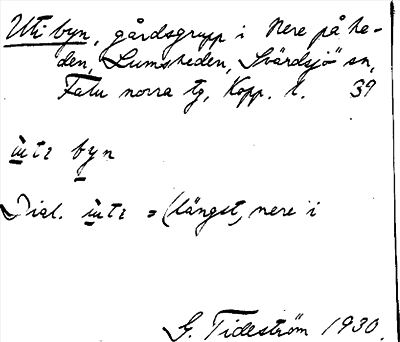 Uti byn, gårdsgrupp i Nere på he-
den, Lumsheden, Svärdsjö sn,
Falu norra tg, Kopp. l. 39
ùtı byn
Dial. ùtı = (längst) nere i
G. Tideström 1930.